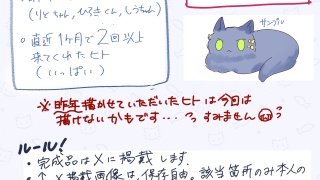 (りとちゃん,ひろきくん,しうちゃん)
○直近1ヶ月で2回以上
来てくれたヒト
(いっぱい)
サンプル
※昨年描かせていただいたヒトは今回は
描けないかもです...?すみません
ルール!
・完成品はXに掲載します.
・↑X掲載画像は、保存自由。該当箇所のみ本人の